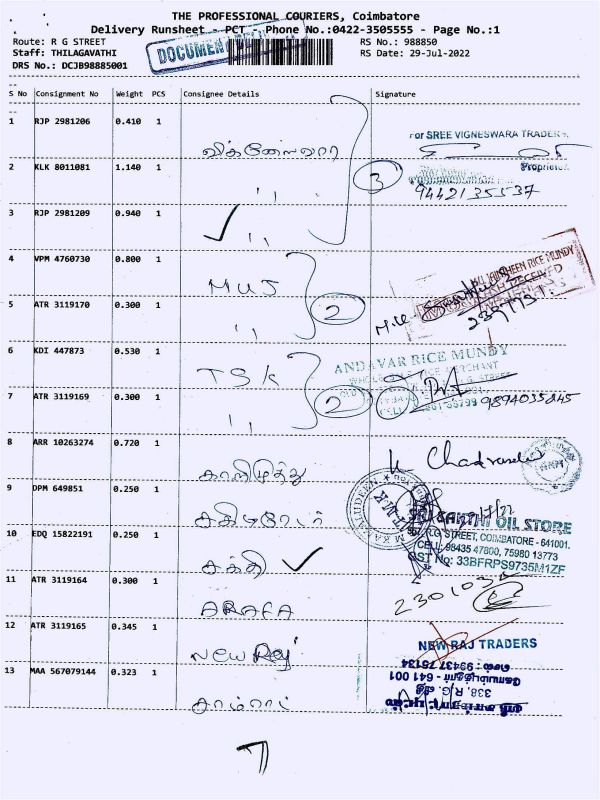 THE PROFESSIONAL COURIERS, Coimbatore
Delivery Runsheet - PCT - Phone No.:0422-3505555 - Page No.:1
Route: R G STREET RS No.: 988850
Staff: THILAGAVATHI RS Date: 29-Jul-2022
DRS No.: DCJB98885001
DOCUMENT
S No Consignment No Weight PCS Consignee Details Signature
1 RJP 2981206 0.410 1
For SREE VIGNESWARA TRADERS,
2 KLK 8011081 1.140 1 ,, 3 Proprietor
94421 35537
3 RJP 2981209 0.940 1 ,,
4 VPM 4760730 0.800 1 MUJ
RICE MUNDY
RECEIVED
5 ATR 3119170 0.300 1 ,, 2
6 KDI 447873 0.530 1 TSK
ANDAVAR RICE MUNDY
7 ATR 3119169 0.300 1 ,, 2 9894035845
8 ARR 10263274 0.720 1 காளிமுத்து
9 DPM 649851 0.250 1
SAKTHI OIL STORE
10 EDQ 15822191 0.250 1 சக்தி
R.G STREET, COIMBATORE - 641001.
CELL: 98435 47800, 75980 13773
GST No: 33BFRPS9735M1ZF
11 ATR 3119164 0.300 1 ARAFA
12 ATR 3119165 0.345 1 New Raj
NEW RAJ TRADERS
13 MAA 567079144 0.323 1 சாம்ராட்
செல் : 99437 75134
கோயம்புத்தூர் - 641 001
338, R.G. வீதி